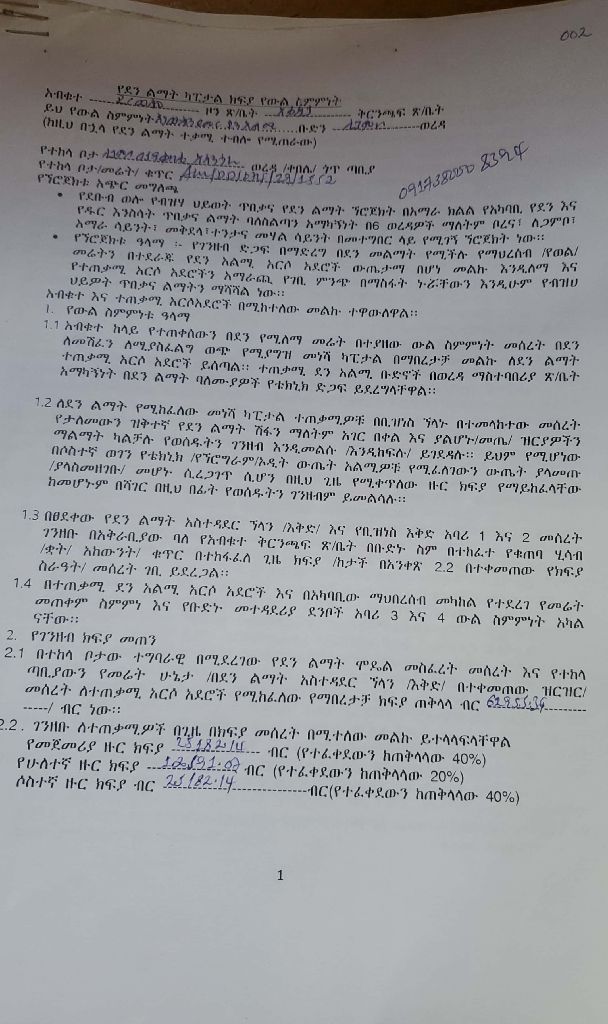 002
የደን ልማት ካፒታል ክፍያ የውል ስምምነት
አብቁተ ዞን ጽ/ቤት ቅርንጫፍ ጽ/ቤት
ይህ የውል ስምምነት ቡድን ወረዳ
(ከዚህ በኋላ የደን ልማት ተቃሚ ተብሎ የሚጠራው)
0917380000
የተከላ ቦታ ወረዳ /ቀበሌ/ ጎጥ ጣቢያ
የተከላ ቦታ/መሬት/ ቁጥር
የኘሮጀክቱ አጭር መግለጫ
• የደቡብ ወሎ የብዝሃ ህይወት ጥበቃና የደን ልማት ኘሮጀክት በአማራ ክልል የአካባቢ የደን እና
የዱር እንስሳት ጥበቃና ልማት ባለስልጣን አማካኝነት በ6 ወረዳዎች ማለትም ቦረና፣ ለጋምቦ፣
አማራ ሳይንት፣ መቅደላ፣ተንታና መሃል ሳይንት በመተግበር ላይ የሚገኝ ኘሮጀክት ነው፡፡
• የኘሮጀክቱ ዓላማ ፡- የገንዘብ ድጋፍ በማድረግ በደን መልማት የሚችሉ የማህበረሰብ /የወል/
መሬትን በተደራጁ የደን አልሚ አርሶ አደሮች ውጤታማ በሆነ መልኩ እንዲለማ እና
የተጠቃሚ አርሶ አደሮችን አማራጪ የገቢ ምንጭ በማስፋት ኑሯቸውን እንዲሁም የብዝሀ
ህይዎት ጥበቃና ልማትን ማሻሻል ነው፡፡
አብቁተ እና ተጠቃሚ አርሶአደሮች በሚከተለው መልኩ ተዋውለዋል፡፡
1. የውል ስምምነቱ ዓላማ
1.1 አብቁተ ከላይ የተጠቀሰውን በደን የሚለማ መሬት በተያዘው ውል ስምምነት መሰረት በደን
ለመሸፈን ለሚያስፈልግ ወጭ የሚያግዝ መነሻ ካፒታል በማበረታቻ መልኩ ለደን ልማት
ተጠቃሚ አርሶ አደሮች ይሰጣል፡፡ ተጠቃሚ ደን አልሚ ቡድኖች በወረዳ ማስተባበሪያ ጽ/ቤት
አማካኝነት በደን ልማት ባለሙያዎች የቴክኒክ ድጋፍ ይደረግላቸዋል፡፡
1.2 ለደን ልማት የሚከፈለው መነሻ ካፒታል ተጠቃሚዎቹ በቢዝነስ ኘላኑ በተመለከተው መሰረት
የታለመውን ዝቅተኛ የደን ልማት ሽፋን ማለትም አገር በቀል እና ያልሆኑ/መጤ/ ዝርያዎችን
ማልማት ካልቻሉ የወሰዱትን ገንዘብ እንዲመልሱ /እንዲከፍሉ/ ይገደዳሉ፡፡ ይህም የሚሆነው
በሶስተኛ ወገን የቴክኒክ /የኘሮግራም/ኦዲት ውጤት አልሚዎቹ የሚፈለገውን ውጤት ያላመጡ
/ያላስመዘገቡ/ መሆኑ ሲረጋገጥ ሲሆን በዚህ ጊዜ የሚቀጥለው ዙር ክፍያ የማይከፈላቸው
ከመሆኑም በሻገር በዚህ በፊት የወሰዱትን ገንዘብም ይመልሳሉ፡፡
1.3 በፀደቀው የደን ልማት አስተዳደር ኘላን /እቅድ/ እና የቢዝነስ እቅድ አባሪ 1 እና 2 መሰረት
ገንዘቡ በአቅራቢያው ባለ የአብቁተ ቅርንጫፍ ጽ/ቤት በቡድኑ ስም በተከፈተ የቁጠባ ሂሳብ
/ቋት/ አከውንት/ ቁጥር በተከፋፈለ ጊዜ ክፍያ /ከታች በአንቀጽ 2.2 በተቀመጠው የክፍያ
ስራዓት/ መሰረት ገቢ ይደረጋል፡፡
1.4 በተጠቃሚ ደን አልሚ አርሶ አደሮች እና በአካባቢው ማህበረሰብ መካከል የተደረገ የመሬት
መጠቀም ስምምነ እና የቡድኑ መተዳደሪያ ደንቦች አባሪ 3 እና 4 ውል ስምምነት አካል
ናቸው፡፡
2. የገንዘብ ክፍያ መጠን
2.1 በተከላ ቦታው ተግባራዊ በሚደረገው የደን ልማት ሞዴል መስፈረት መሰረት እና የተከላ
ጣቢያውን የመሬት ሁኔታ /በደን ልማት አስተዳደር ኘላን /እቅድ/ በተቀመጠው ዝርዝር/
መሰረት ለተጠቃሚ አርሶ አደሮች የሚከፈለው የማበረታቻ ክፍያ ጠቅላላ ብር 62955.36
-----/ ብር ነው፡፡
2.2. ገንዘቡ ለተጠቃሚዎች በጊዜ በክፍያ መሰረት በሚተለው መልኩ ይተላላፍላቸዋል
የመጀመሪያ ዙር ክፍያ 25182.14 ብር (የተፈቀደውን ከጠቅላላው 40%)
የሁለተኛ ዙር ክፍያ 12591.07 ብር (የተፈቀደውን ከጠቅላላው 20%)
ሶስተኛ ዙር ክፍያ ብር 25182.14 ብር(የተፈቀደውን ከጠቅላላው 40%)
1